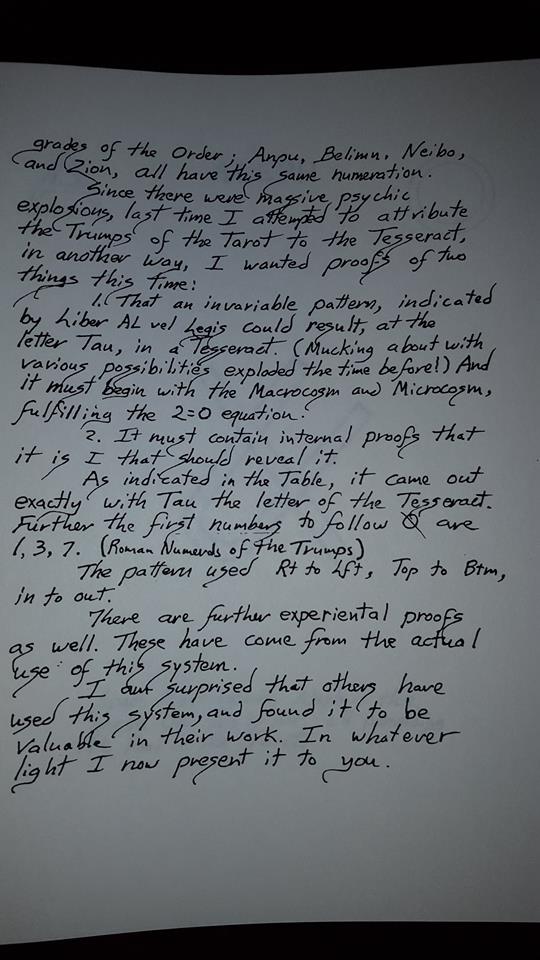 grades of the Order; Anpu, Belimn, Neibo,
and Zion, all have this same numeration.
Since there were massive psychic
explosions, last time I attempted to attribute
the Trumps of the Tarot to the Tesseract,
in another way, I wanted proofs of two
things this time:
1. That an invariable pattern, indicated
by Liber AL vel Legis could result, at the
letter Tau, in a Tesseract. (Mucking about with
various possibilities exploded the time before!) And
it must begin with the Macrocosm and Microcosm,
fulfilling the 2=0 equation.
2. It must contain internal proofs that
it is I that should reveal it.
As indicated in the Table, it came out
exactly with Tau the letter of the Tesseract.
Further the first numbers to follow 0 are
1, 3, 7. (Roman Numerals of the Trumps)
The pattern used Rt to Lft, Top to Btm,
in to out.
There are further experiental proofs
as well. These have come from the actual
use of this system.
I am surprised that others have
used this system, and found it to be
valuable in their work. In whatever
light I now present it to you.